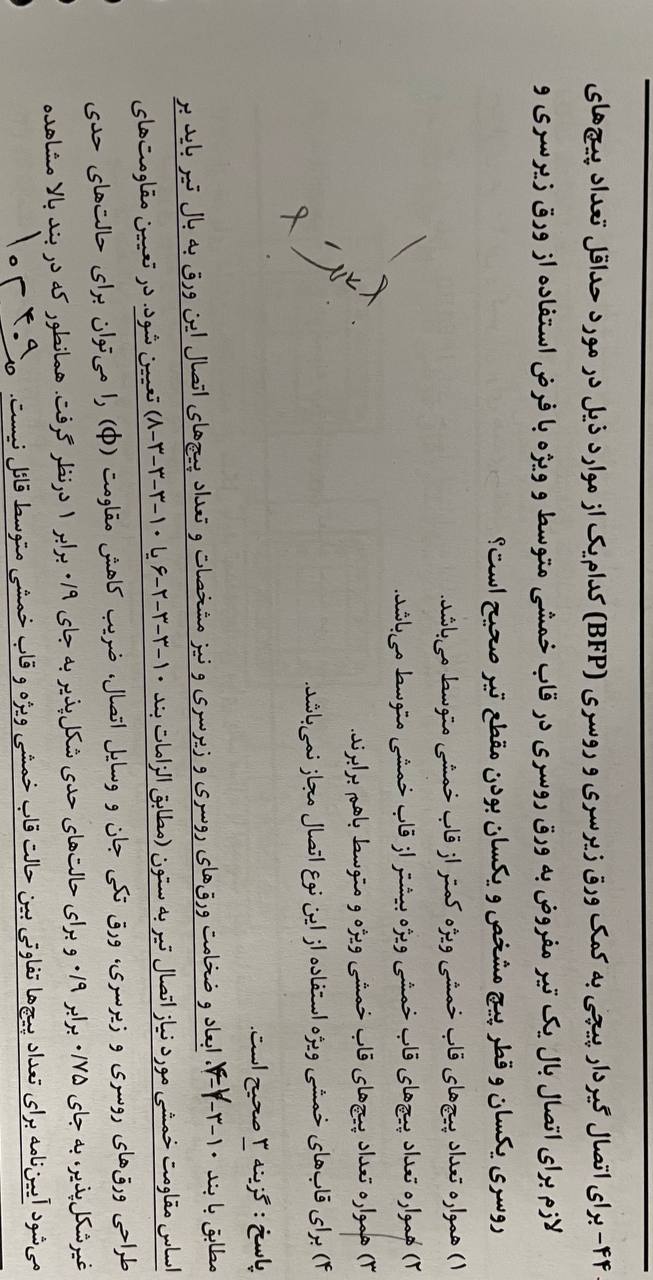 ۴۴- برای اتصال گیردار پیچی به کمک ورق زیرسری و روسری (BFP) کدام‌یک از موارد ذیل در مورد حداقل تعداد پیچ‌های
لازم برای اتصال بال یک تیر مفروض به ورق روسری در قاب خمشی متوسط و ویژه با فرض استفاده از ورق زیرسری و
روسری یکسان و قطر پیچ مشخص و یکسان بودن مقطع تیر صحیح است؟
۱) همواره تعداد پیچ‌های قاب خمشی ویژه کمتر از قاب خمشی متوسط می‌باشد.
۲) همواره تعداد پیچ‌های قاب خمشی ویژه بیشتر از قاب خمشی متوسط می‌باشد.
۳) همواره تعداد پیچ‌های قاب خمشی ویژه و متوسط باهم برابرند.
۴) برای قاب‌های خمشی ویژه استفاده از این نوع اتصال مجاز نمی‌باشد.
پاسخ : گزینه ۳ صحیح است.
مطابق با بند ۱۰-۳-، ابعاد و ضخامت ورق‌های روسری و زیرسری و نیز مشخصات و تعداد پیچ‌های اتصال این ورق به بال تیر باید بر
اساس مقاومت خمشی مورد نیاز اتصال تیر به ستون (مطابق الزامات بند ۱۰-۳-۳-۲-۶ یا ۱۰-۳-۳-۳-۸) تعیین شود. در تعیین مقاومت‌های
طراحی ورق‌های روسری و زیرسری، ورق تکی جان و وسایل اتصال، ضریب کاهش مقاومت (Φ) را می‌توان برای حالت‌های حدی
غیرشکل‌پذیر، به جای ۰/۷۵ برابر ۰/۹ و برای حالت‌های حدی شکل‌پذیر به جای ۰/۹ برابر ۱ درنظر گرفت. همانطور که در بند بالا مشاهده
می‌شود آیین‌نامه برای تعداد پیچ‌ها تفاوتی بین حالت قاب خمشی ویژه و قاب خمشی متوسط قائل نیست.